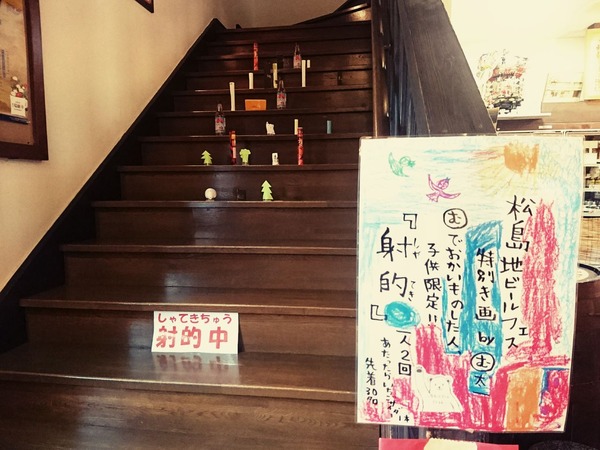 松島地ビールフェス
特別き画 by む太
むでおかいものした人
子供限定!!
『射的』
しゃてき
一人2回
先着30名
しゃてきちゅう
射的中